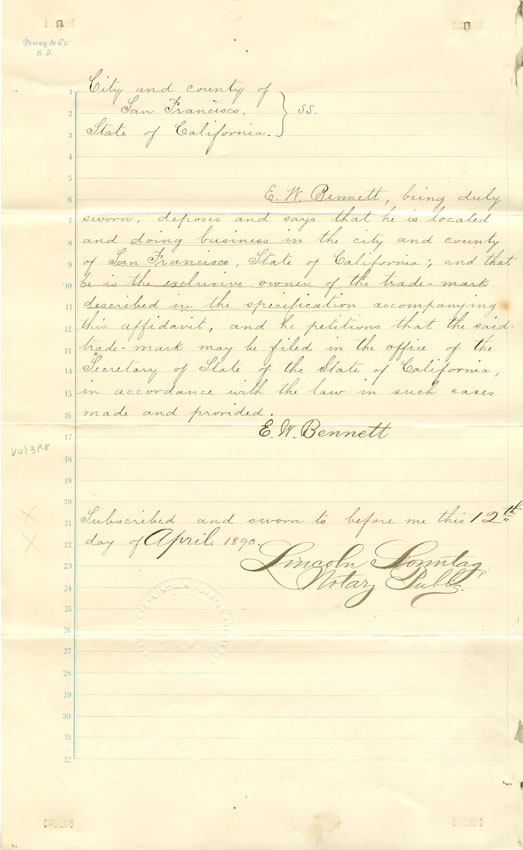 Dewey & Co.
S. F.
1 City and county of
2 San Francisco, } SS.
3 State of California.
4
5
6 E. W. Bennett, being duly
7 sworn, deposes and says that he is located
8 and doing business in the city and county
9 of San Francisco, State of California; and that
10 he is the exclusive owner of the trade-mark
11 described in the specification accompanying
12 this affidavit, and he petitions that the said
13 trade-mark may be filed in the office of the
14 Secretary of State of the State of California,
15 in accordance with the law in such cases
16 made and provided.
17 E. W. Bennett
Vol 3 P. 8
18
19
20
21 Subscribed and sworn to before me this 12th
22 day of April, 1890,
23 Lincoln Sonntag,
24 Notary Public.
25
26
27
28
29
30
31
32